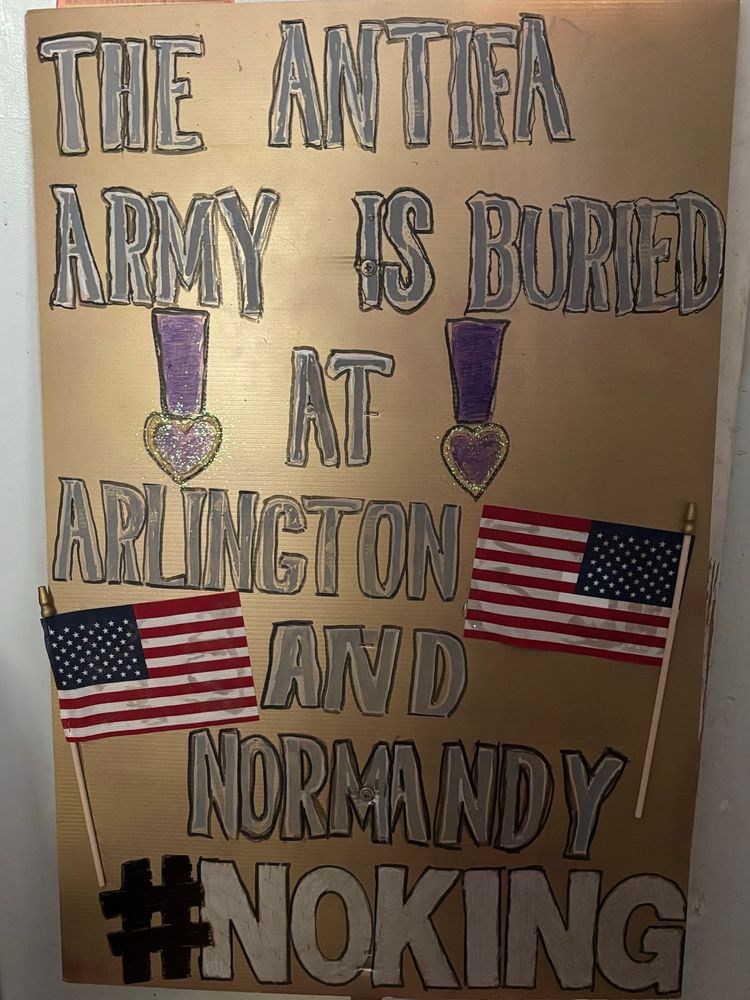 THE ANTIFA
ARMY IS BURIED
AT
ARLINGTON
AND
NORMANDY
#NOKING